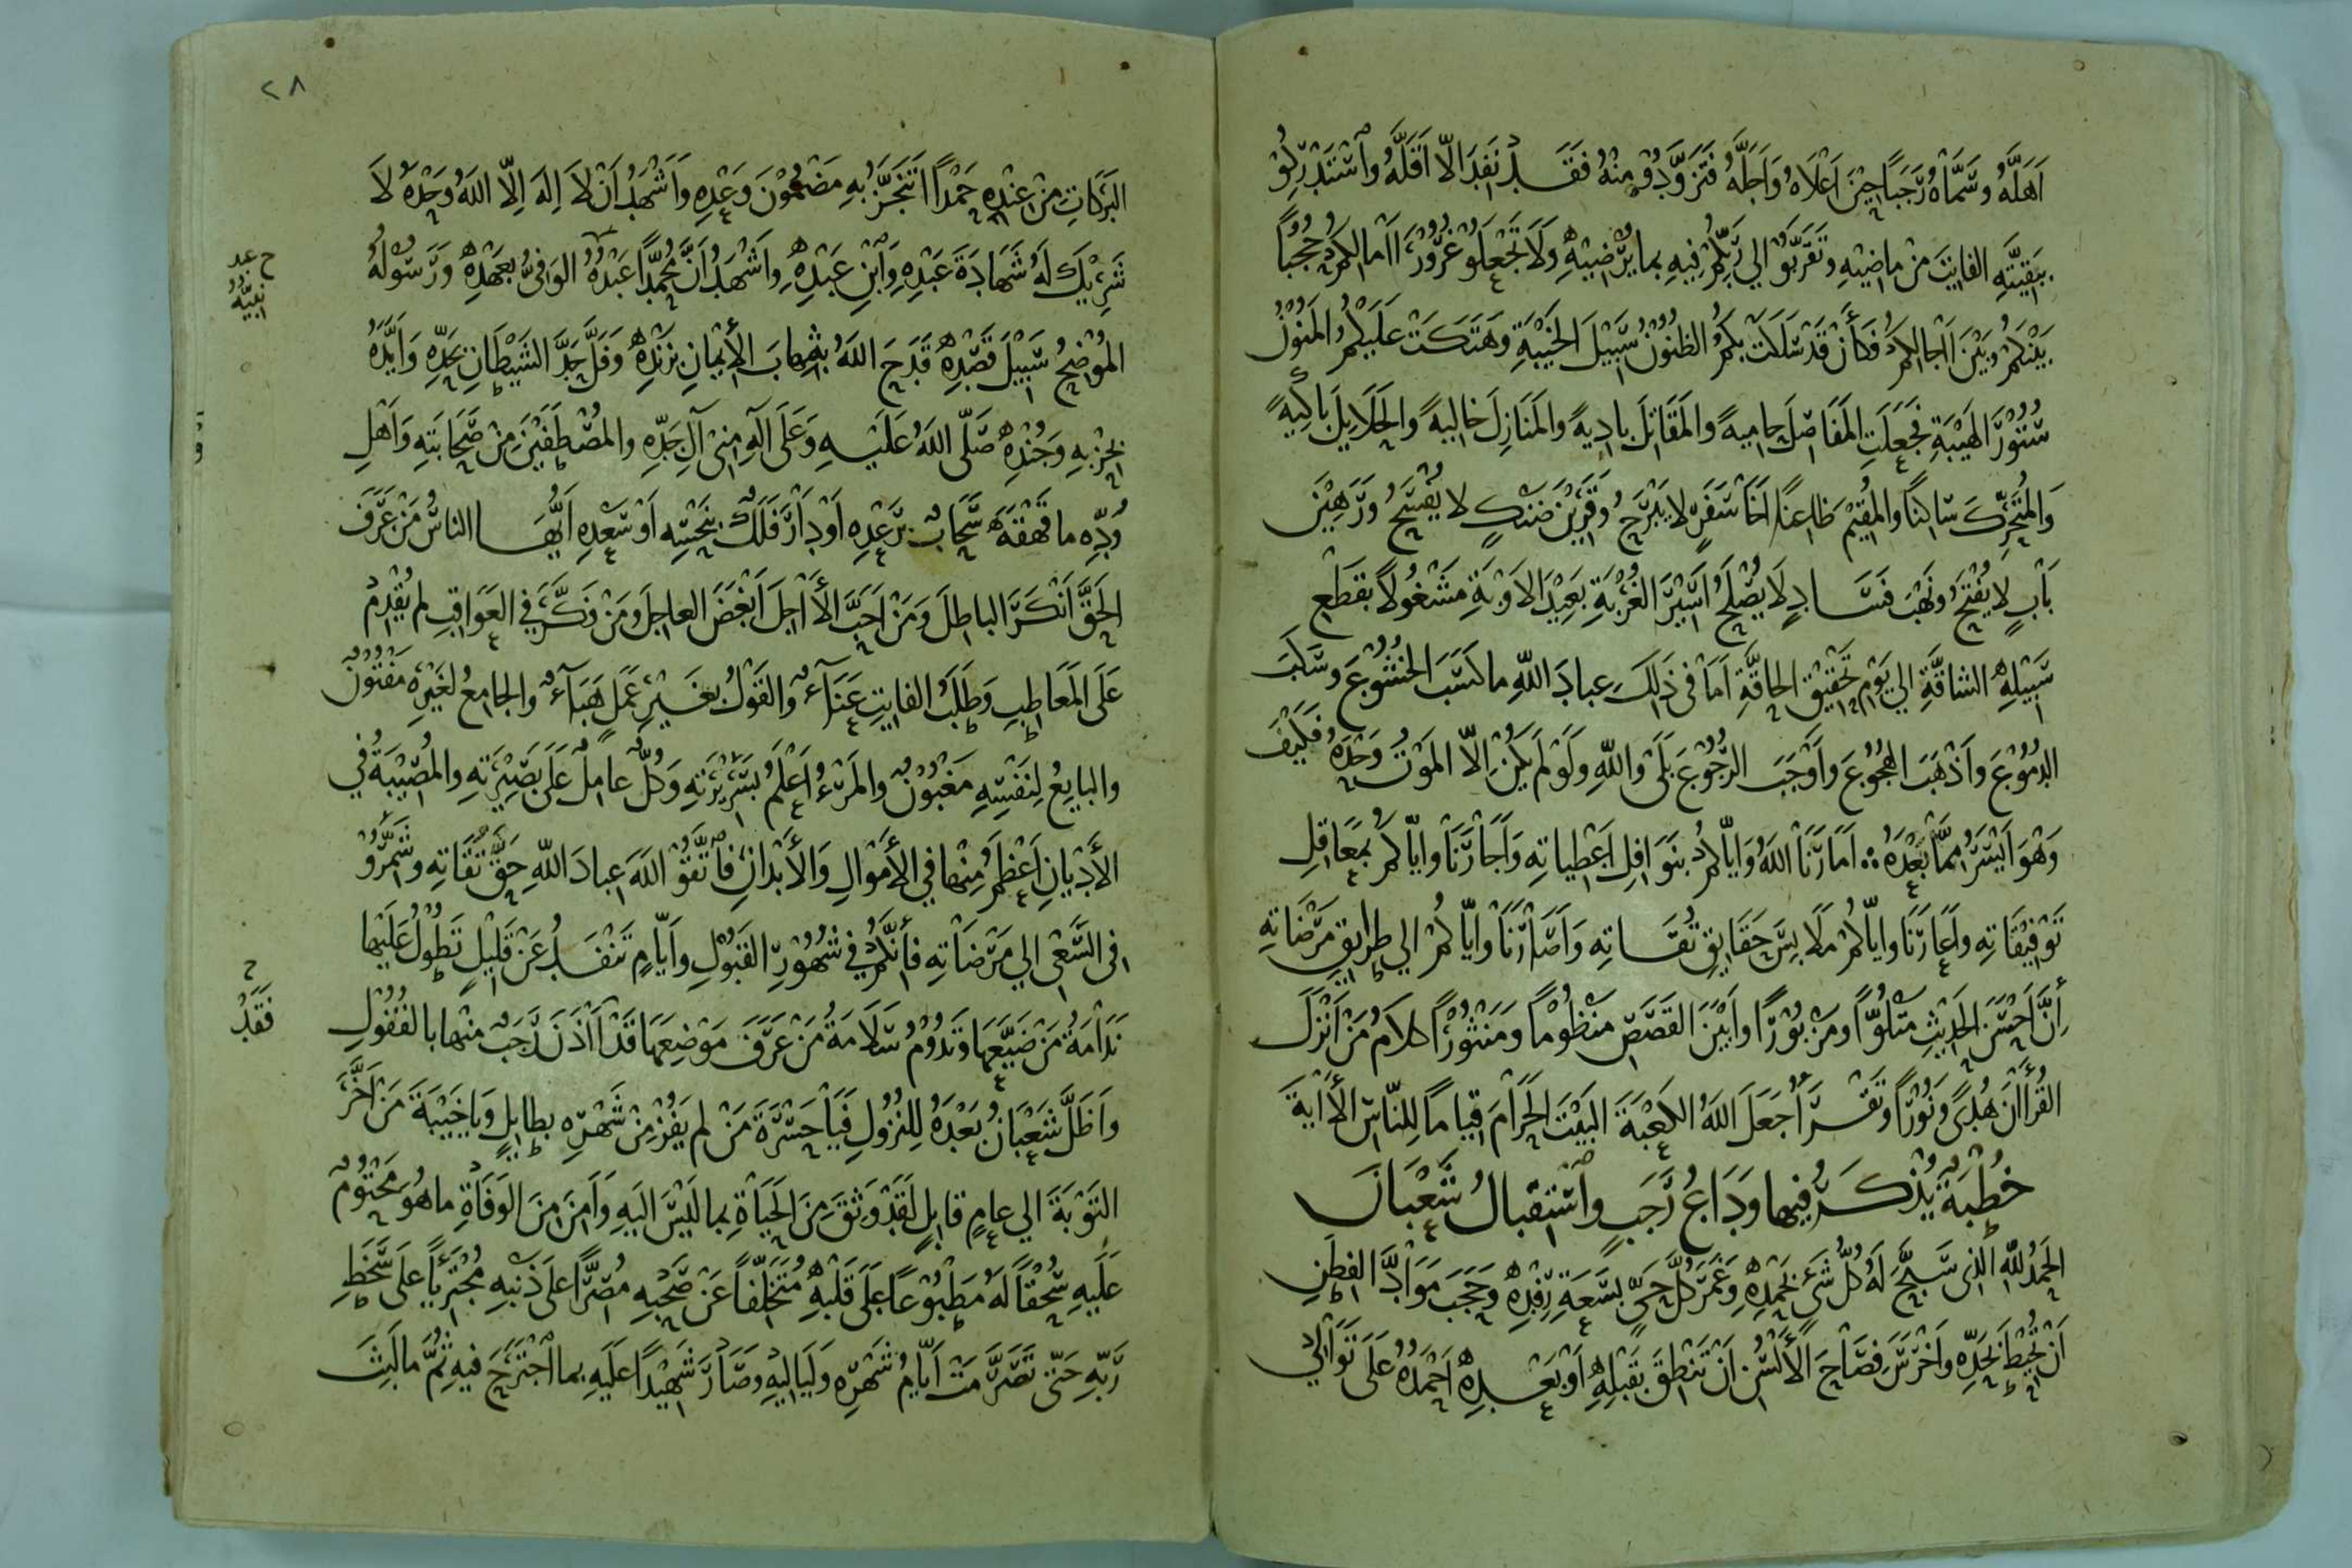 اَهَلَّهُ وسَمَّاهُ رَجَبًا حِيْنَ اَعْلَاهُ وَاَجَلَّهُ فَتَزَوَّدُوْ مِنْهُ فَقَدْ نَفِدَ الّا اَقَلَّهُ واسْتَدْرِكُوْ
بِبَقِيَّتِهِ الفايِتَ مِنْ ماضِيْهِ وتَقَرَّبُوْ الي رَبِّكُمْ فِيهِ بما يُرْضِيْهِ وَلَا تَجْعَلُوْ غُرُوْرَ اَامالِكُمْ حُجُبًا
بَيْنَكُمْ وبَيْنَ اَاجالِكُمْ فَكَأَنْ قَدْ سَلَكَتْ بِكُمُ الظُنُوْنُ سَبِيْلَ الخَيْبَةِ وهَتَكَتْ عَلَيْكُمُ المَنُوْنُ
سُتُوْرَ الهَيْبَةِ فجَعَلَتِ المَفَاصِلَ حامِيةً والمَقَاتِلَ بادِيةً والمَنَازِلَ خاليةً والحَلَايِلَ باكِيةً
وَالمُتَحَرِّكَ سَاكِنًا والمُقِيْمَ ظاعِنًا اَخَا سَفَرٍ لا يَبْرَحُ وقَرِيْنَ ضَنْكٍ لا يُفْسَحُ ورَهِيْنَ
بَابٍ لا يُفْتَحُ ونَهْبَ فَسَادٍ لَا يُصْلَحُ اَسِيْرَ الغُرْبَةِ بَعِيْدَ الاَوْبَةِ مَشْغُولًا بقَطْعِ
سَبِيْلِهِ الشاقَّةِ الي يَوْمِ تَحْقِيْقِ الحاقَّةِ اَمَا في ذَلِكَ عِبادَ اللّهِ ما كَسَبَ الخُشُوْعَ وسَكَبَ
الدُمُوْعَ وَاَذْهَبَ الهُجُوْعَ واَوْجَبَ الرُجُوْعَ بَلَى واللّهِ ولَوْ لَمْ يَكُنْ اِلّا المَوْتُ وَحْدَهُ فَكَيْفَ
وَهُوَ اَيْسَرُ مِمَّا بَعْدَهُ اَمَارَنَا اللهُ وَايّاكُمْ بنَوَافِلِ اَعْطِياتِهِ وَاَجَارَنَا وايّاكُمْ بمَعَاقِلِ
تَوْفِيْقَاتِهِ واَعَارَنَا وايّاكُمْ مَلَابِسَ حَقَايِقِ تُقَاتِهِ وَاَصَارَنَا وايّاكُمْ الي طرايِقِ مَرْضَاتِهِ
اِنَّ اَحْسَنَ الحَدِيْثِ مَتْلُوًّا ومَزْبُوْرًا وَاَبْيَنَ القَصَصِ مَنْظُوْمًا ومَنْثُوْرًا كلامُ مَنْ اَنْزَلَ
القُرْأَانَ هُدًى ونُوْرًا وتَقْرَأُ جَعَلَ اللهُ الكَعْبَةَ البَيْتَ الحَرَامَ قِيامًا لِلنّاسِ الأَايةَ
خُطْبَةٌ يُذْكَرُ فيها وَدَاعُ رَجَبٍ واسْتِقبالُ شَعْبَانَ
الحَمْدُ للّهِ الذي سَبَّحَ لَهُ كُلُّ شَيْءٍ بحَمْدِهِ وغَمَرَ كُلَّ حَيٍّ بسَعَةِ رِفْدِهِ وحَجَبَ مَوَادَّ الفِطَنِ
اَنْ تُحِيْطَ بحَدِّهِ واَخْرَسَ فِصَاحَ الأَلْسُنِ اَنْ تَنْطِقَ بقَبْلِهِ اَوْ بَعْدِهِ اَحْمَدُهُ عَلَى تَوَالِي
٢٨
البَرَكَاتِ مِنْ عِنْدِهِ حَمْدًا اَتَنَجَّزُ بِهِ مَضْمُوْنَ وَعْدِهِ وَاَشْهَدُ اَنْ لاَ اِلهَ اِلّا اللهُ وَحْدَهُ لَا
شَرِيْكَ لَهُ شَهَادَةَ عَبْدِهِ وَابْنِ عَبْدِهِ واَشْهَدُ اَنَّ مُحَمَّدًا عَبْدُهُ الوَافِيُ بعَهْدِهِ ورَسُوْلُهُ
المُوْضِحُ سَبِيْلَ قَصْدِهِ قَدَحَ اللهُ بشِهابِ الأِيْمَانِ بزَنْدِهِ وفَلَّ حَدَّ الشَيْطَانِ بحَدِّهِ وَاَيَّدَهُ
بحِزْبِهِ وَجُنْدِهِ صَلَّى اللهُ عَلَيْهِ وَعَلَى آلِهِ مِنْ آلِ جَدِّهِ والمُصْطَفَيْنَ مِنْ صَحَابَتِهِ وَاَهْلِ
وُدِّهِ ما قَهْقَهَ سَحَابٌ برَعْدِهِ اَوْ دَارَ فَلَكٌ بنَحْسِهِ اَوْ سَعْدِهِ اَيُّهَا الناسُ مَنْ عَرَفَ
الحَقَّ اَنْكَرَ الباطِلَ وَمَنْ اَحَبَّ الأَاجِلَ اَبْغَضَ العاجِلَ ومَنْ فَكَّرَ في العَوَاقِبِ لم يُقْدِمْ
عَلَى المَعَاطِبِ وَطَلَبُ الفايِتِ عَنَاءٌ والقَوْلُ بغَيْرِ عَمَلٍ هَبَاءٌ والجامِعُ لغَيْرِهِ مَفْتُوْنٌ
والبايِعُ لِنَفْسِهِ مَغْبُوْنٌ والمَرْءُ اَعْلَمُ بسَرِيْرَتِهِ وَكُلٌّ عامِلٌ عَلَى بَصِيْرَتِهِ والمُصِيْبَةُ في
الأَدْيانِ اَعْظَمُ مِنْها في الأَمْوَالِ وَالأَبْدانِ فاتَّقُوْ اللهَ عِبادَ اللّهِ حَقَّ تُقَاتِهِ وشَمِّرُوْ
في السَّعْيِ الي مَرْضَاتِهِ فأِنَّكُمْ في شُهُوْرِ القَبُوْلِ واَيّامٍ تَنْفَدُ عَنْ قَلِيْلٍ تَطُوْلُ عَلَيْها
نَدَامَةُ مَنْ ضَيَّعَهَا وَتَدُوْمُ سَلَامَةُ مَنْ عَرَفَ مَوْضِعَهَا قَدْ اَاذَنَ رَجَبٌ منها بالقُفُوْلِ
وَاَظَلَّ شَعْبَانُ بَعْدَهُ لِلنُزُوْلِ فَيَا حَسْرَةَ مَنْ لم يَفُزْ مِنْ شَهْرِهِ بطايِلٍ ويا خَيْبَةَ مَنْ اَخَّرَ
التَوْبَةَ الي عامٍ قابِلٍ لَقَدْ وَثِقَ مِنَ الحَيَاةِ بما لَيْسَ اليَهِ وَاَمِنَ مِنَ الوَفَاةِ ما هُوَ مَحْتُوْمٌ
عَلَيهِ سُحْقًا لَهُ مَطْبُوْعًا عَلَى قَلْبِهِ مُتَخَلِّفًا عَنْ صَحْبِهِ مُصِرًّا عَلَى ذَنْبِهِ مُجْتَرِيًا على سَخَطِ
رَبِّهِ حَتّى تَصَرَّمَتْ اَيّامُ شَهْرِهِ ولَيَالِيْهِ وصَارَ شَهِيْدًا عَلَيهِ بما اجْتَرَحَ فيهِ ثُمَّ ما لَبِثَ
نبيّه
فَقَدْ